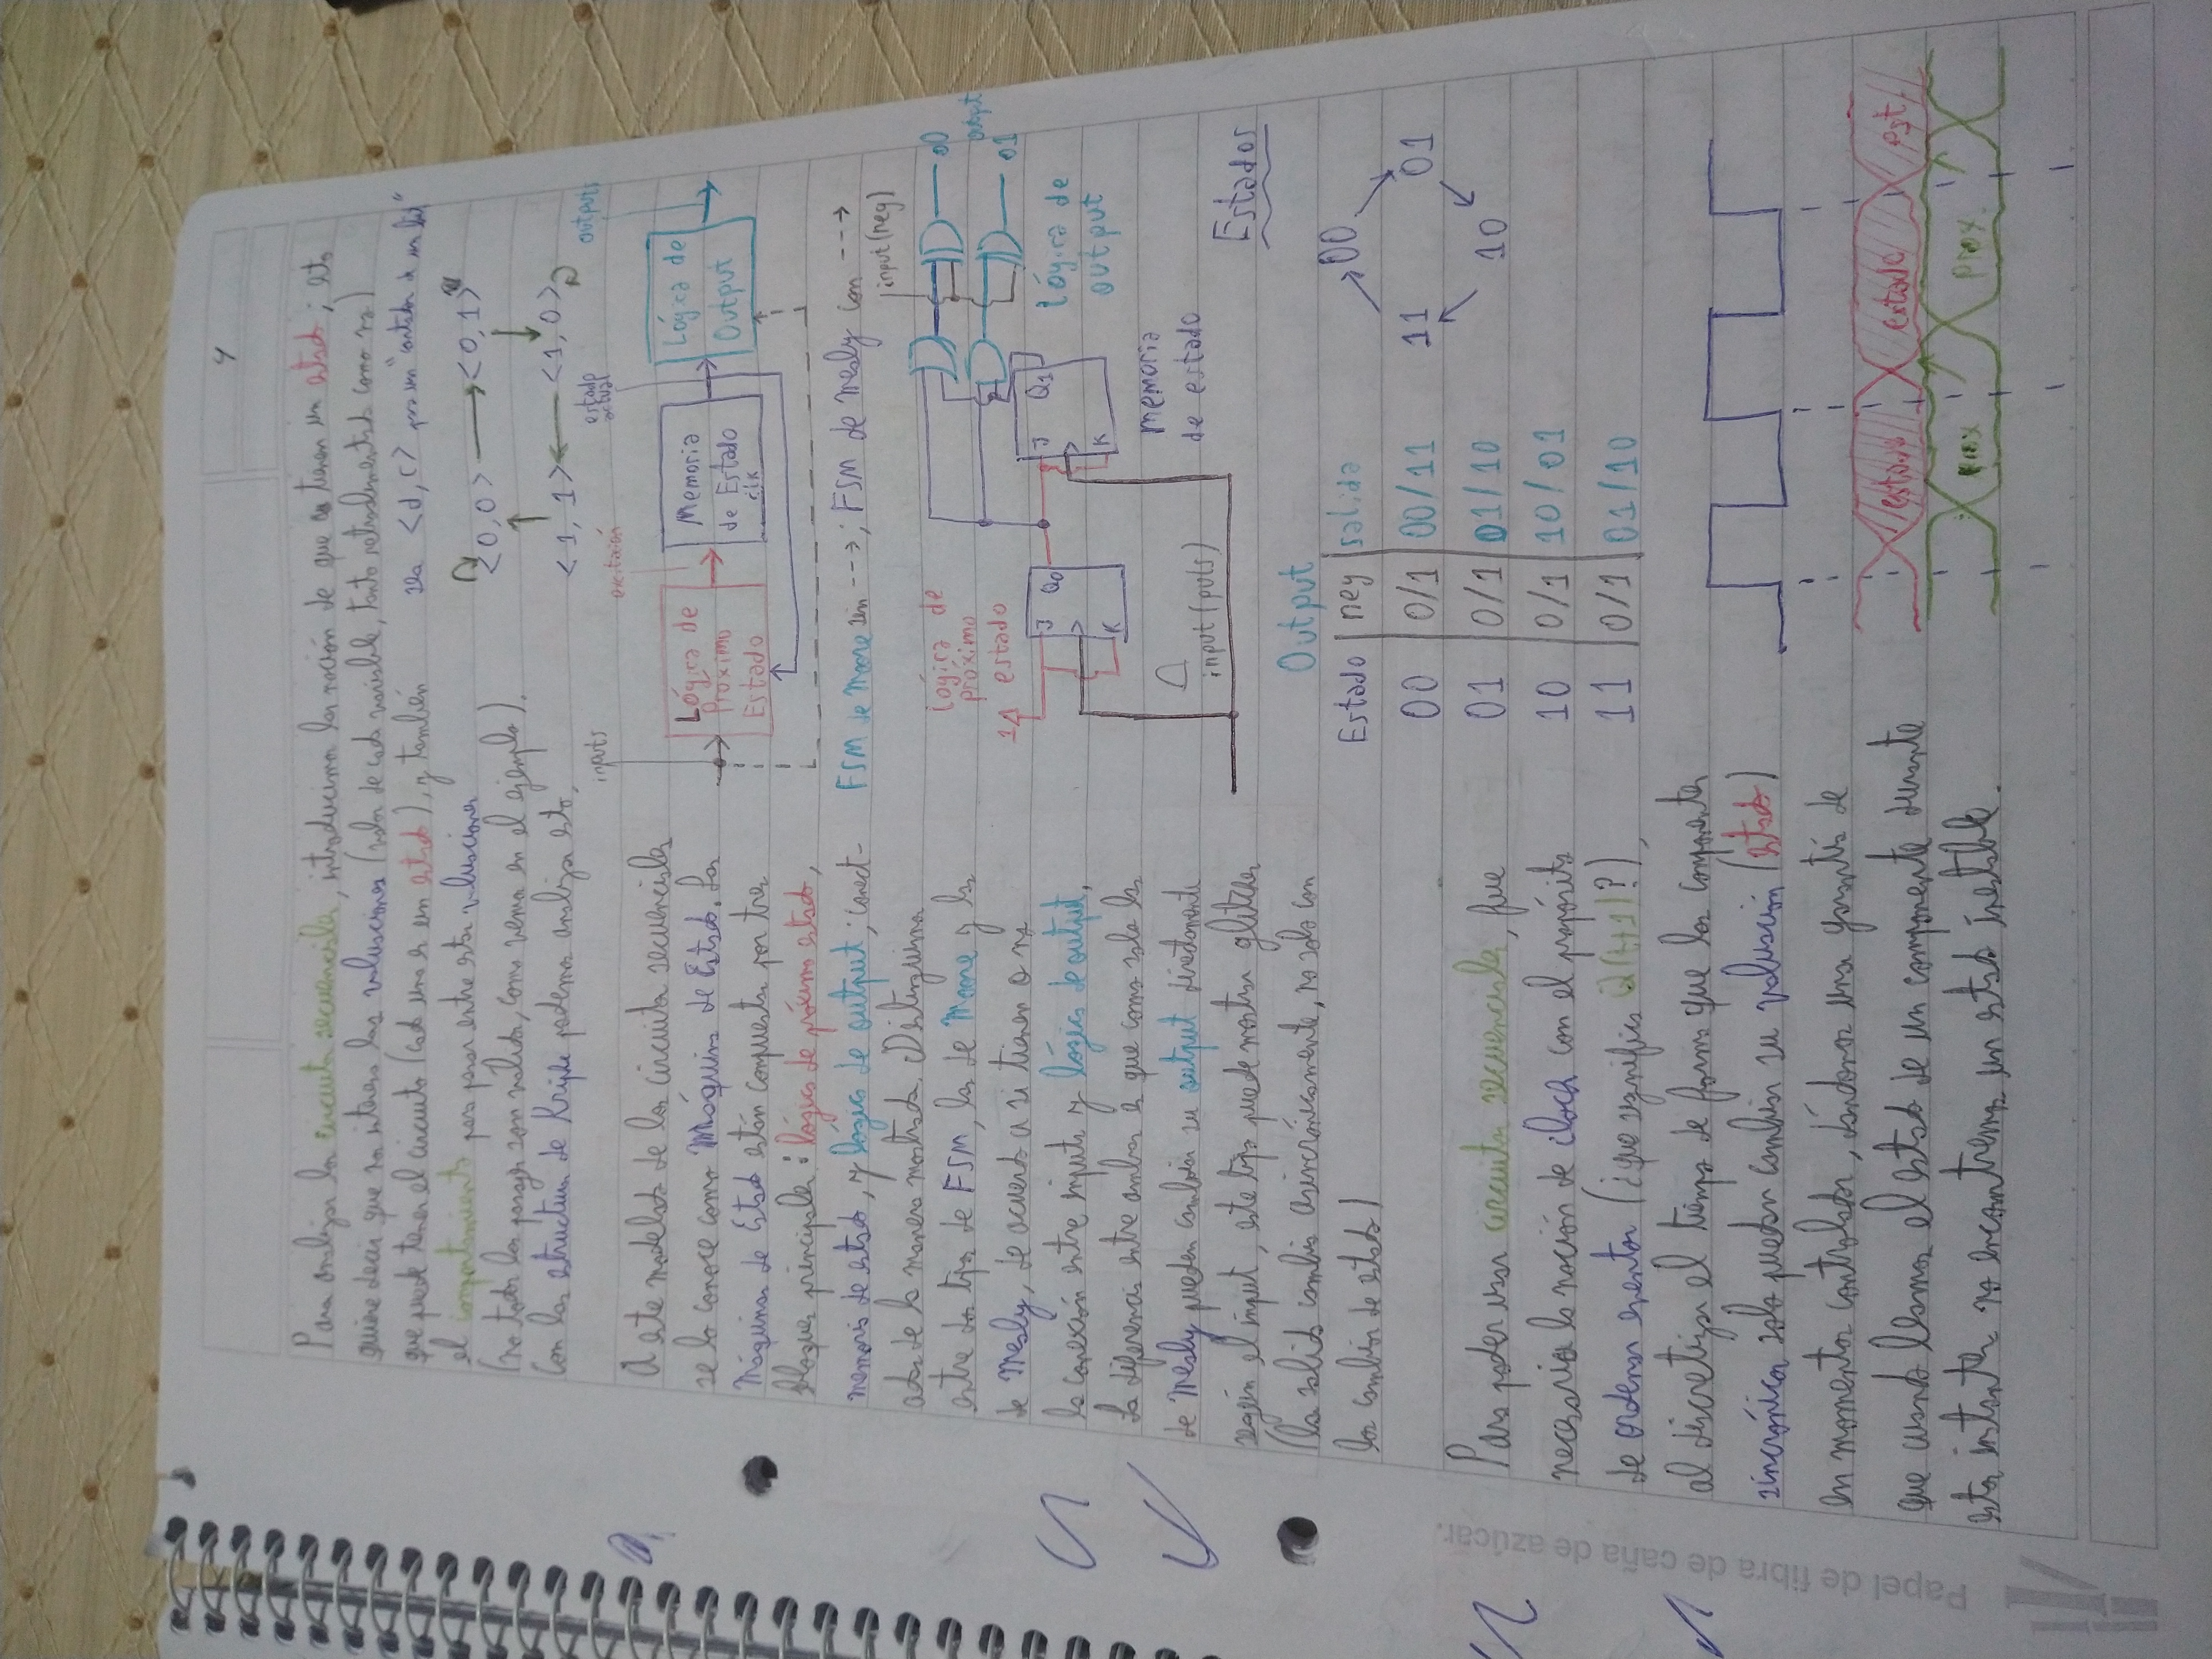 4
Para analizar los circuitos secuenciales, introducimos la noción de que tienen un estado; esto
quiere decir que nos interesa las valuaciones (valor de cada variable, tanto retroalimentada como no)
que puede tener el circuito (cada una es un estado), y también
el comportamiento para pasar entre estas valuaciones
(no todos los pasajes son válidos, como vemos en el ejemplo).
Con las estructuras de Kripke podemos analizar esto.
sea <d, c> para un "contador de un bit"
<0,0> <0,1>
<1,1> <1,0>
A este modelado de los circuitos secuenciales
se lo conoce como Máquina de Estado. Las
Máquinas de Estado están compuestas por tres
bloques principales: lógica de próximo estado,
memoria de estado, y lógica de output; conect-
adas de la manera mostrada. Distinguimos
entre dos tipos de FSM, las de Moore y las
de Mealy, de acuerdo a si tienen o no
la conexión entre inputs y lógica de output.
La diferencia entre ambas es que como solo las
de Mealy pueden cambiar su output directamente
según el input, este tipo puede mostrar glitches
(la salida cambia asincrónicamente, no solo con
los cambios de estado)
inputs
excitación
estado
actual
outputs
Lógica de
Próximo
Estado
Memoria
de Estado
clk
Lógica de
Output
FSM de Moore sin --->; FSM de Mealy con --->
input (neg)
Lógica de
próximo
estado
1
J Q0
K
J Q1
K
o0
output
o1
Lógica de
output
memoria
de estado
input (puls)
Estados
00
11 01
10
Output
Estado | neg | salida
00 | 0/1 | 00/11
01 | 0/1 | 01/10
10 | 0/1 | 10/01
11 | 0/1 | 01/10
Para poder usar circuitos secuenciales, fue
necesaria la noción de clock con el propósito
de ordenar eventos (¿que significa Q(t+1)?),
al discretizar el tiempo de forma que los componentes
sincrónicos solo puedan cambiar su valuación (estado)
en momentos controlados, dándonos una garantía de
que cuando leamos el estado de un componente durante
estos instantes no encontremos un estado inestable.
estado estado est.
prox prox.
Papel de fibra de caña de azúcar.